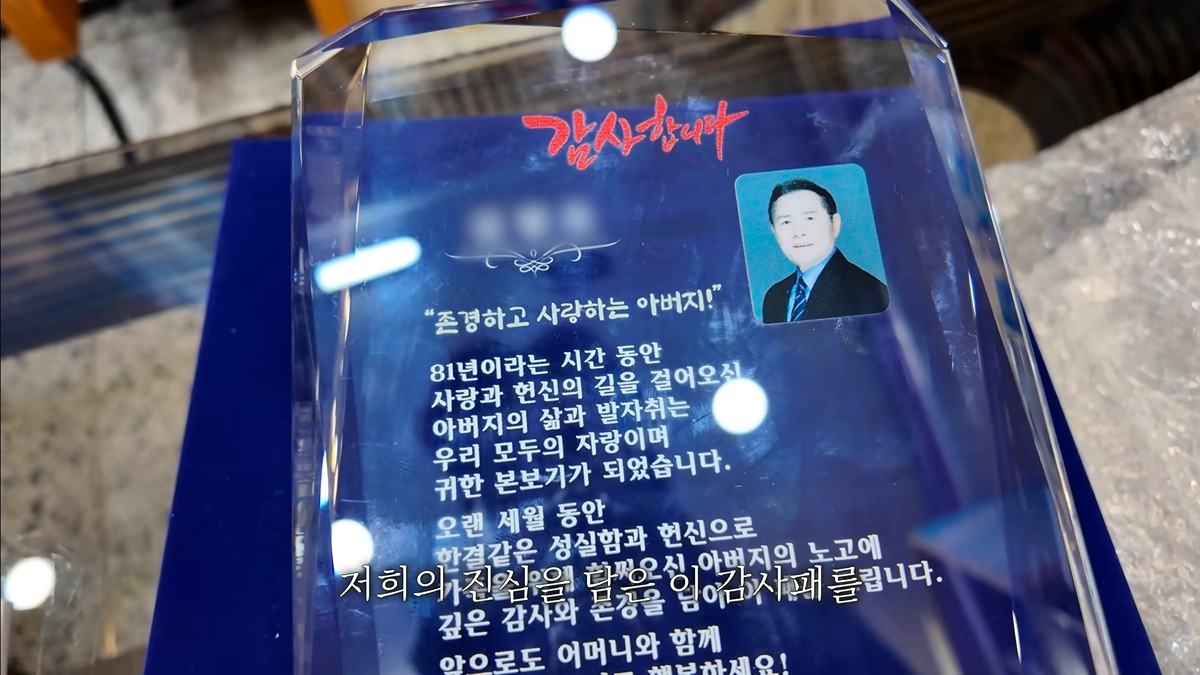 감사합니다
“존경하고 사랑하는 아버지!”
81년이라는 시간 동안
사랑과 헌신의 길을 걸어오신
아버지의 삶과 발자취는
우리 모두의 자랑이며
귀한 본보기가 되었습니다.
오랜 세월 동안
한결같은 성실함과 헌신으로
아버지의 노고에
저희의 진심을 담은 이 감사패를
깊은 감사와 존경을 담아
앞으로도 어머니와 함께
행복하세요!